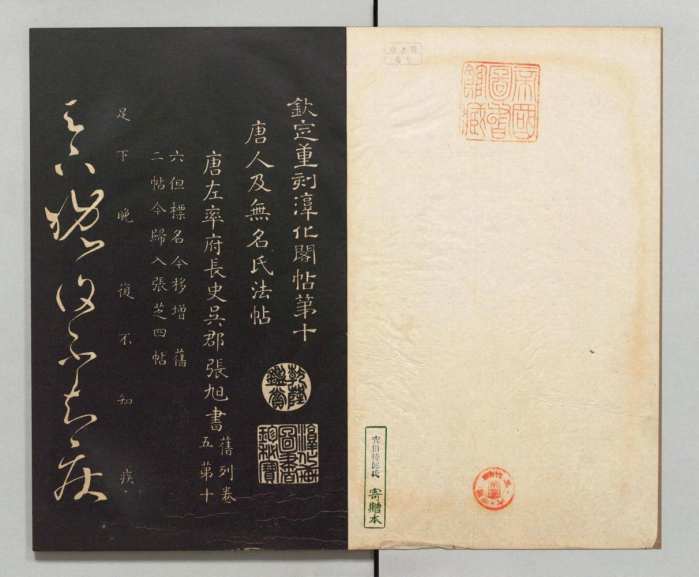 欽定重刻淳化閣帖第十
唐人及無名氏法帖
乾隆鑑賞
淳化軒圖書珍秘寶
唐左率府長史吳郡張旭書
舊列卷五第十
六但標名今移增 舊
二帖今歸入張芝四帖
足下晚復不知疾
寄贈本